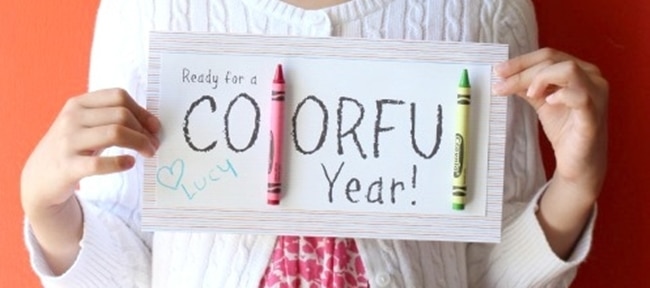 Ready for a
CO ORFU
Year!
♡ Lucy
Crayola